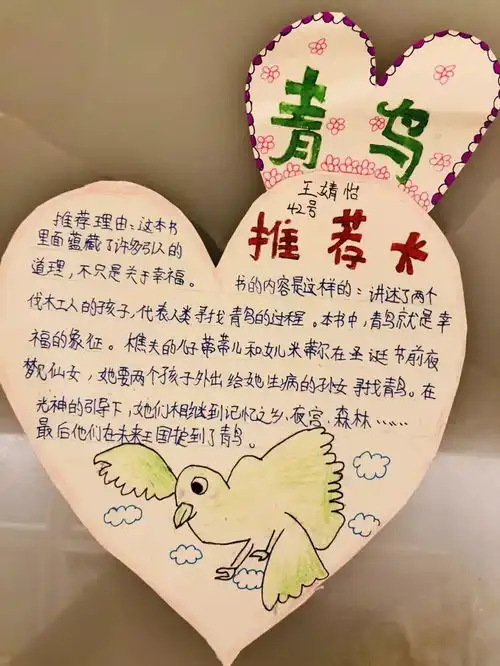 青鸟
王婧怡
42号
推荐卡
推荐理由：这本书
里面蕴藏了许多引人的
道理，不只是关于幸福。
书的内容是这样的：讲述了两个
伐木工人的孩子，代表人类寻找青鸟的过程。本书中，青鸟就是幸
福的象征。樵夫的儿子蒂蒂儿和女儿米蒂尔在圣诞节前夜
梦见仙女，她要两个孩子外出给她生病的孙女寻找青鸟。在
光神的引导下，她们相继到记忆之乡、夜宫、森林……
最后他们在未来王国捉到了青鸟。